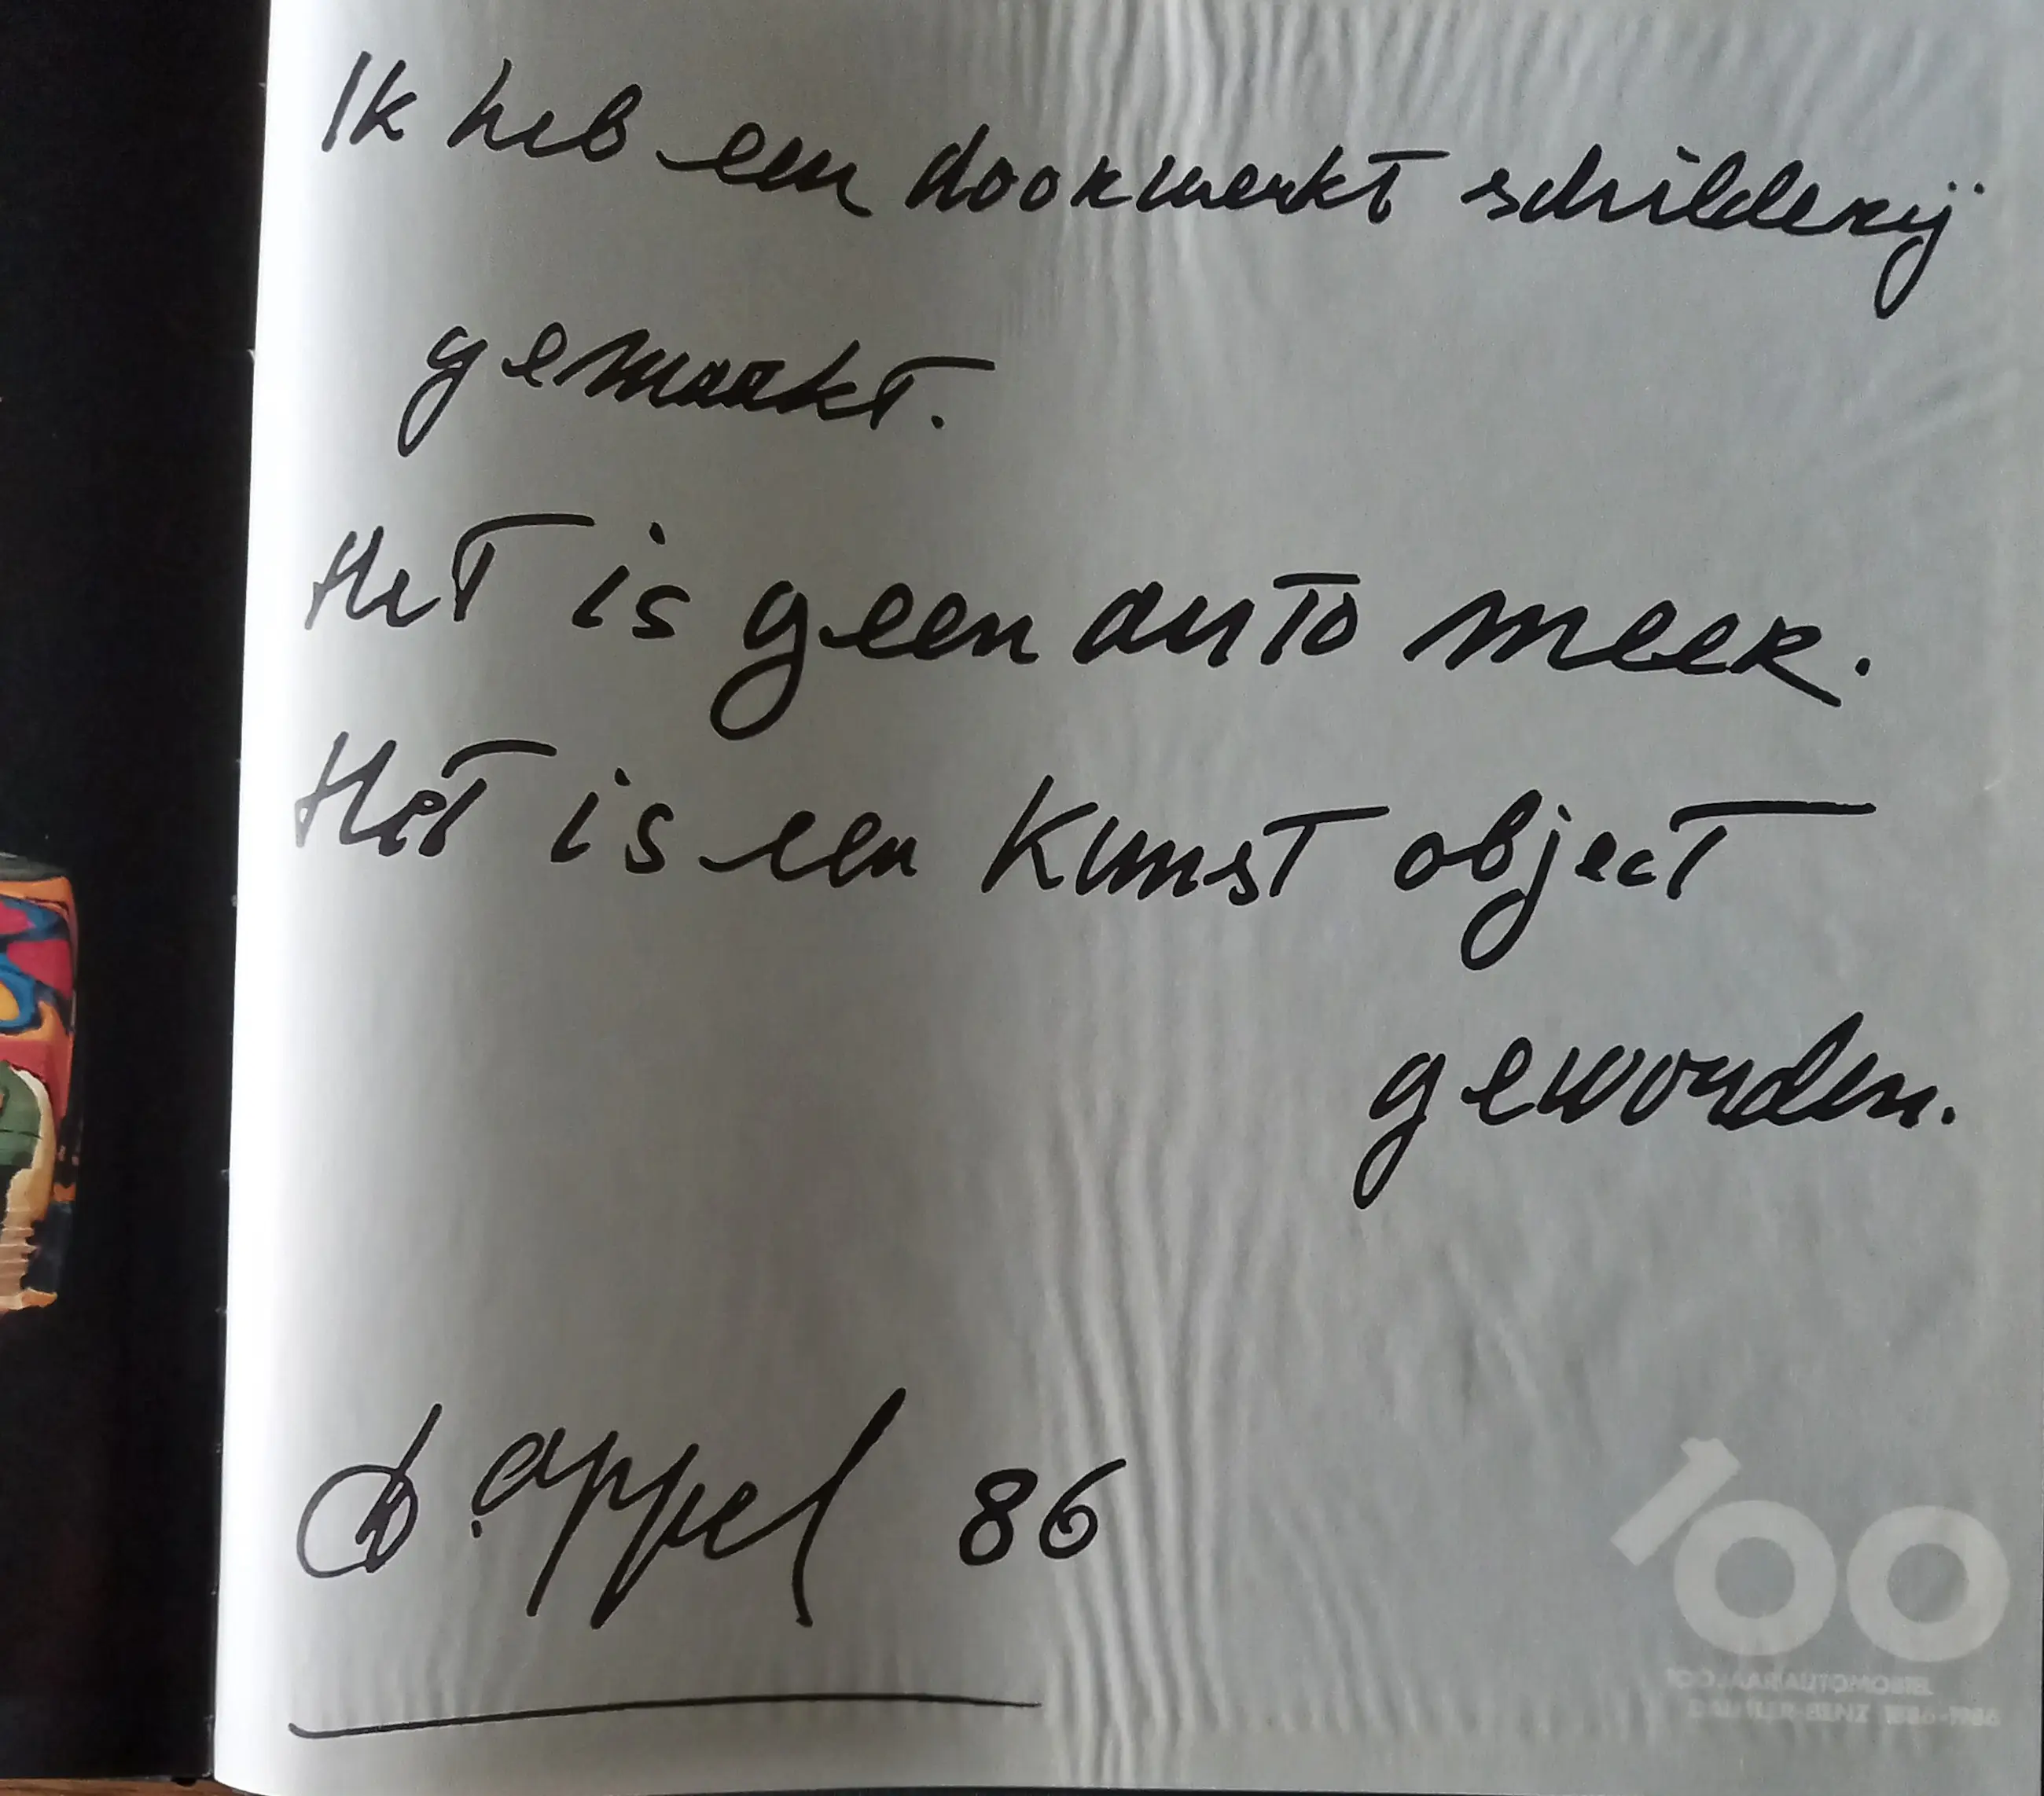 Ik heb een doorwerkt schilderij
gemaakt.
Het is geen auto meer.
Het is een Kunst object
geworden.
K. appel 86
100
100 JAAR AUTOMOBIEL
DAIMLER-BENZ 1886-1986